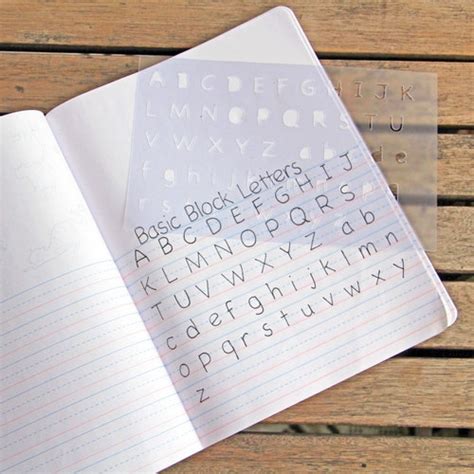 A B C D E F G H I J K
L M N O P Q R S T U
V W X Y Z a b c d e
f g h i
Basic Block Letters
A B C D E F G H I J
K L M N O P Q R S
T U V W X Y Z a b
c d e f g h i j k l m n
o p q r s t u v w x y
z